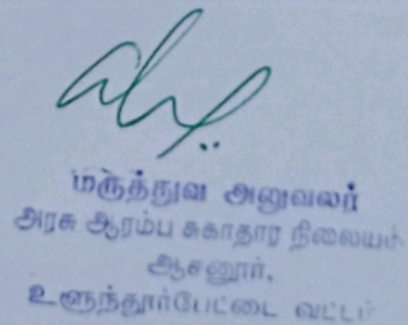 மருத்துவ அலுவலர்
அரசு ஆரம்ப சுகாதார நிலையம்
ஆசனூர்,
உளுந்தூர்பேட்டை வட்டம்